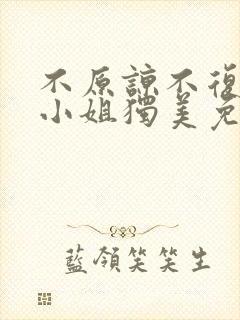 不原諒不復
小姐獨美免
藍領笑笑生